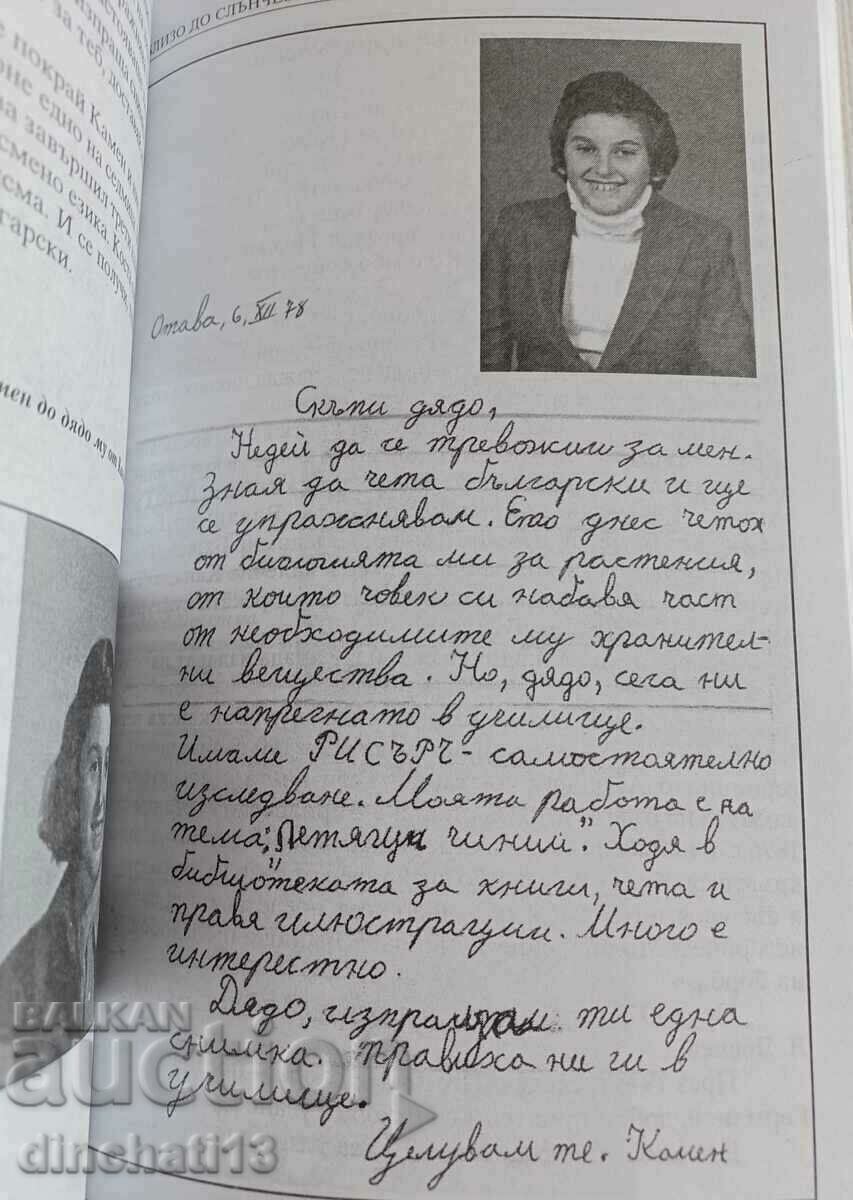 изпраща
за теб, достав
покрай Камен и
оне едно на седми
на завършил трети
смено езика. Кога
ема. И се получи
гарски.
мен до дядо му от
ЛИЗО ДО СЛЪНЧЕ
Отава, 6, XII 78
Скъпи дядо,
Недей да се тревожиш за мен.
Зная да чета български и ще
се упражнявам. Ето днес четох
от биологията ми за растения,
от които човек си набавя част
от необходимите му хранител-
ни вещества. Но, дядо, сега ни
е напрегнато в училище.
Имаме РИСЪРЧ - самостоятелно
изследване. Моята работа е на
тема: "Летящи чинии". Ходя в
библиотеката за книги, чета и
правя илюстрации. Много е
интерестно.
Дядо, изпращам ти една
снимка. Правиха ни ги в
училище.
Целувам те. Камен
BALKAN
auction
dinchati13